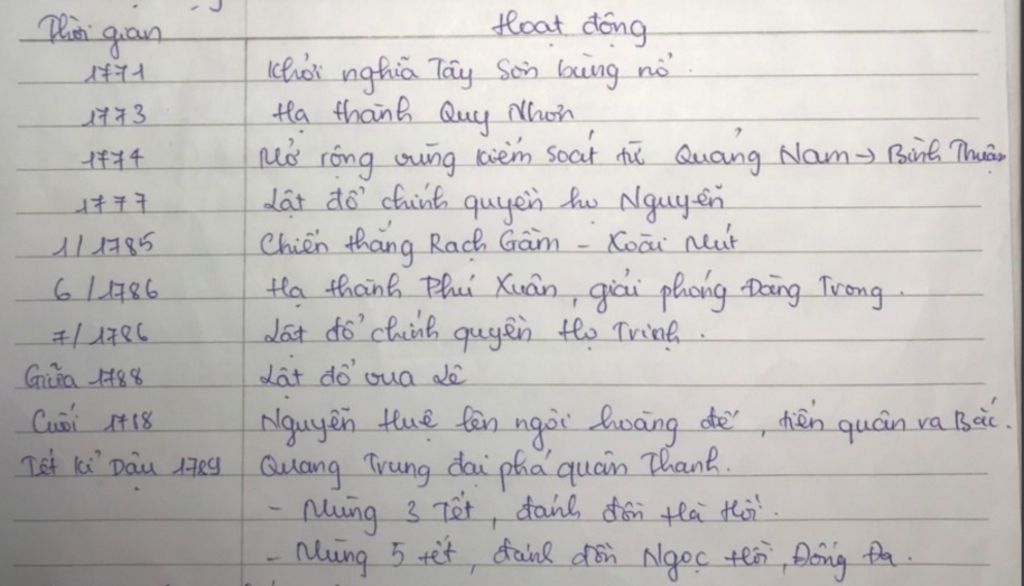 Thời gian Hoạt động
1771 Khởi nghĩa Tây Sơn bùng nổ.
1773 Hạ thành Quy Nhơn
1774 Mở rộng vùng kiểm soát từ Quảng Nam → Bình Thuận
1777 Lật đổ chính quyền họ Nguyễn
1/1785 Chiến thắng Rạch Gầm - Xoài Mút
6/1786 Hạ thành Phú Xuân, giải phóng Đàng Trong.
7/1786 Lật đổ chính quyền Họ Trịnh.
Giữa 1788 Lật đổ vua Lê
Cuối 1788 Nguyễn Huệ lên ngôi hoàng đế, tiến quân ra Bắc.
Tết Kỉ Dậu 1789 Quang Trung đại phá quân Thanh.
- Mùng 3 Tết, đánh đồn Hà Hồi.
- Mùng 5 tết, đánh đồn Ngọc Hồi, Đống Đa.